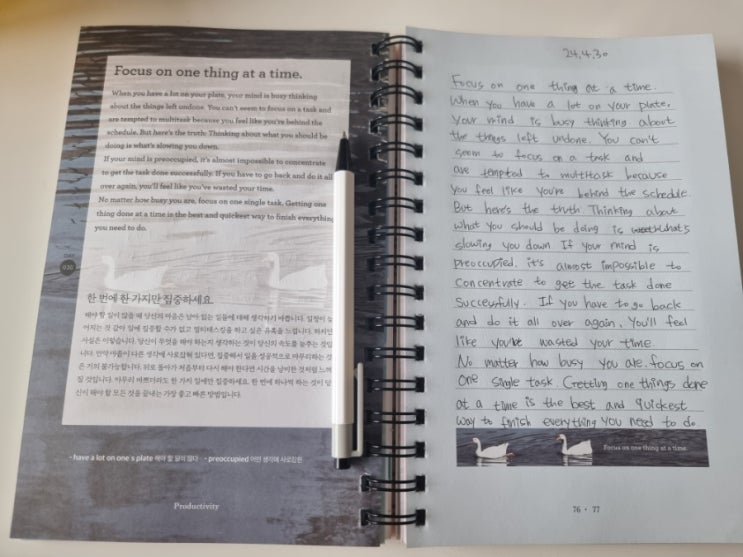 Focus on one thing at a time.
When you have a lot on your plate, your mind is busy thinking
about the things left undone. You can't seem to focus on a task and
are tempted to multitask because you feel like you're behind the
schedule. But here's the truth: Thinking about what you should be
doing is what's slowing you down.
If your mind is preoccupied, it's almost impossible to concentrate
to get the task done successfully. If you have to go back and do it all
over again, you'll feel like you've wasted your time.
No matter how busy you are, focus on one single task. Getting one
thing done at a time is the best and quickest way to finish everything
you need to do.
DAY
020
한 번에 한 가지만 집중하세요
해야 할 일이 많을 때 당신의 마음은 남아 있는 일들에 대해 생각하기 바쁩니다. 일정이 늦
어지는 것 같아 일에 집중할 수가 없고 멀티태스킹을 하고 싶은 유혹을 느낍니다. 하지만
사실은 이렇습니다. 당신이 무엇을 해야 하는지 생각하는 것이 당신의 속도를 늦추는 것입
니다. 만약 마음이 다른 생각에 사로잡혀 있다면, 집중해서 일을 성공적으로 마무리하는 것
은 거의 불가능합니다. 뒤로 돌아가 처음부터 다시 해야 한다면 시간을 낭비한 것처럼 느껴
질 것입니다. 아무리 바쁘더라도 한 가지 일에만 집중하세요. 한 번에 하나씩 하는 것이 당
신이 해야 할 모든 것을 끝내는 가장 좋고 빠른 방법입니다.
- have a lot on one's plate 해야 할 일이 많다 - preoccupied 어떤 생각에 사로잡힌
Productivity
24.4.30
Focus on one thing at a time.
When you have a lot on your plate,
your mind is busy thinking about
the things left undone. You can't
seem to focus on a task and
are tempted to multitask because
you feel like you're behind the schedule.
But here's the truth: Thinking about
what you should be doing is what's
slowing you down If your mind is
preoccupied, it's almost impossible to
concentrate to get the task done
successfully. If you have to go back
and do it all over again, You'll feel
like you've wasted your time.
No matter how busy you are, focus on
one single task. Getting one things done
at a time is the best and quickest
way to finish everything you need to do
Focus on one thing at a time.
76 · 77